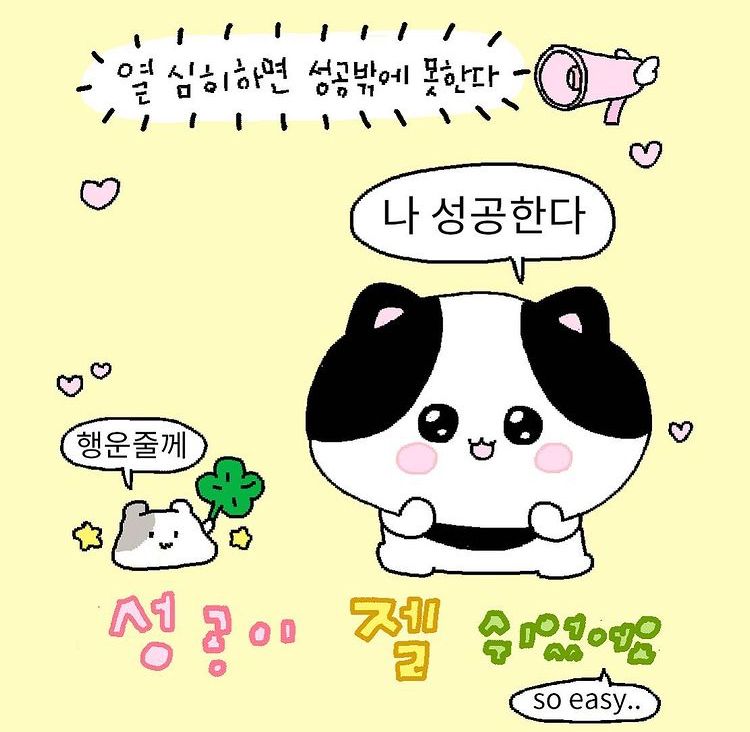 열심히하면 성공밖에 못한다
나 성공한다
행운줄께
성공이 젤 쉬웠어요
so easy..